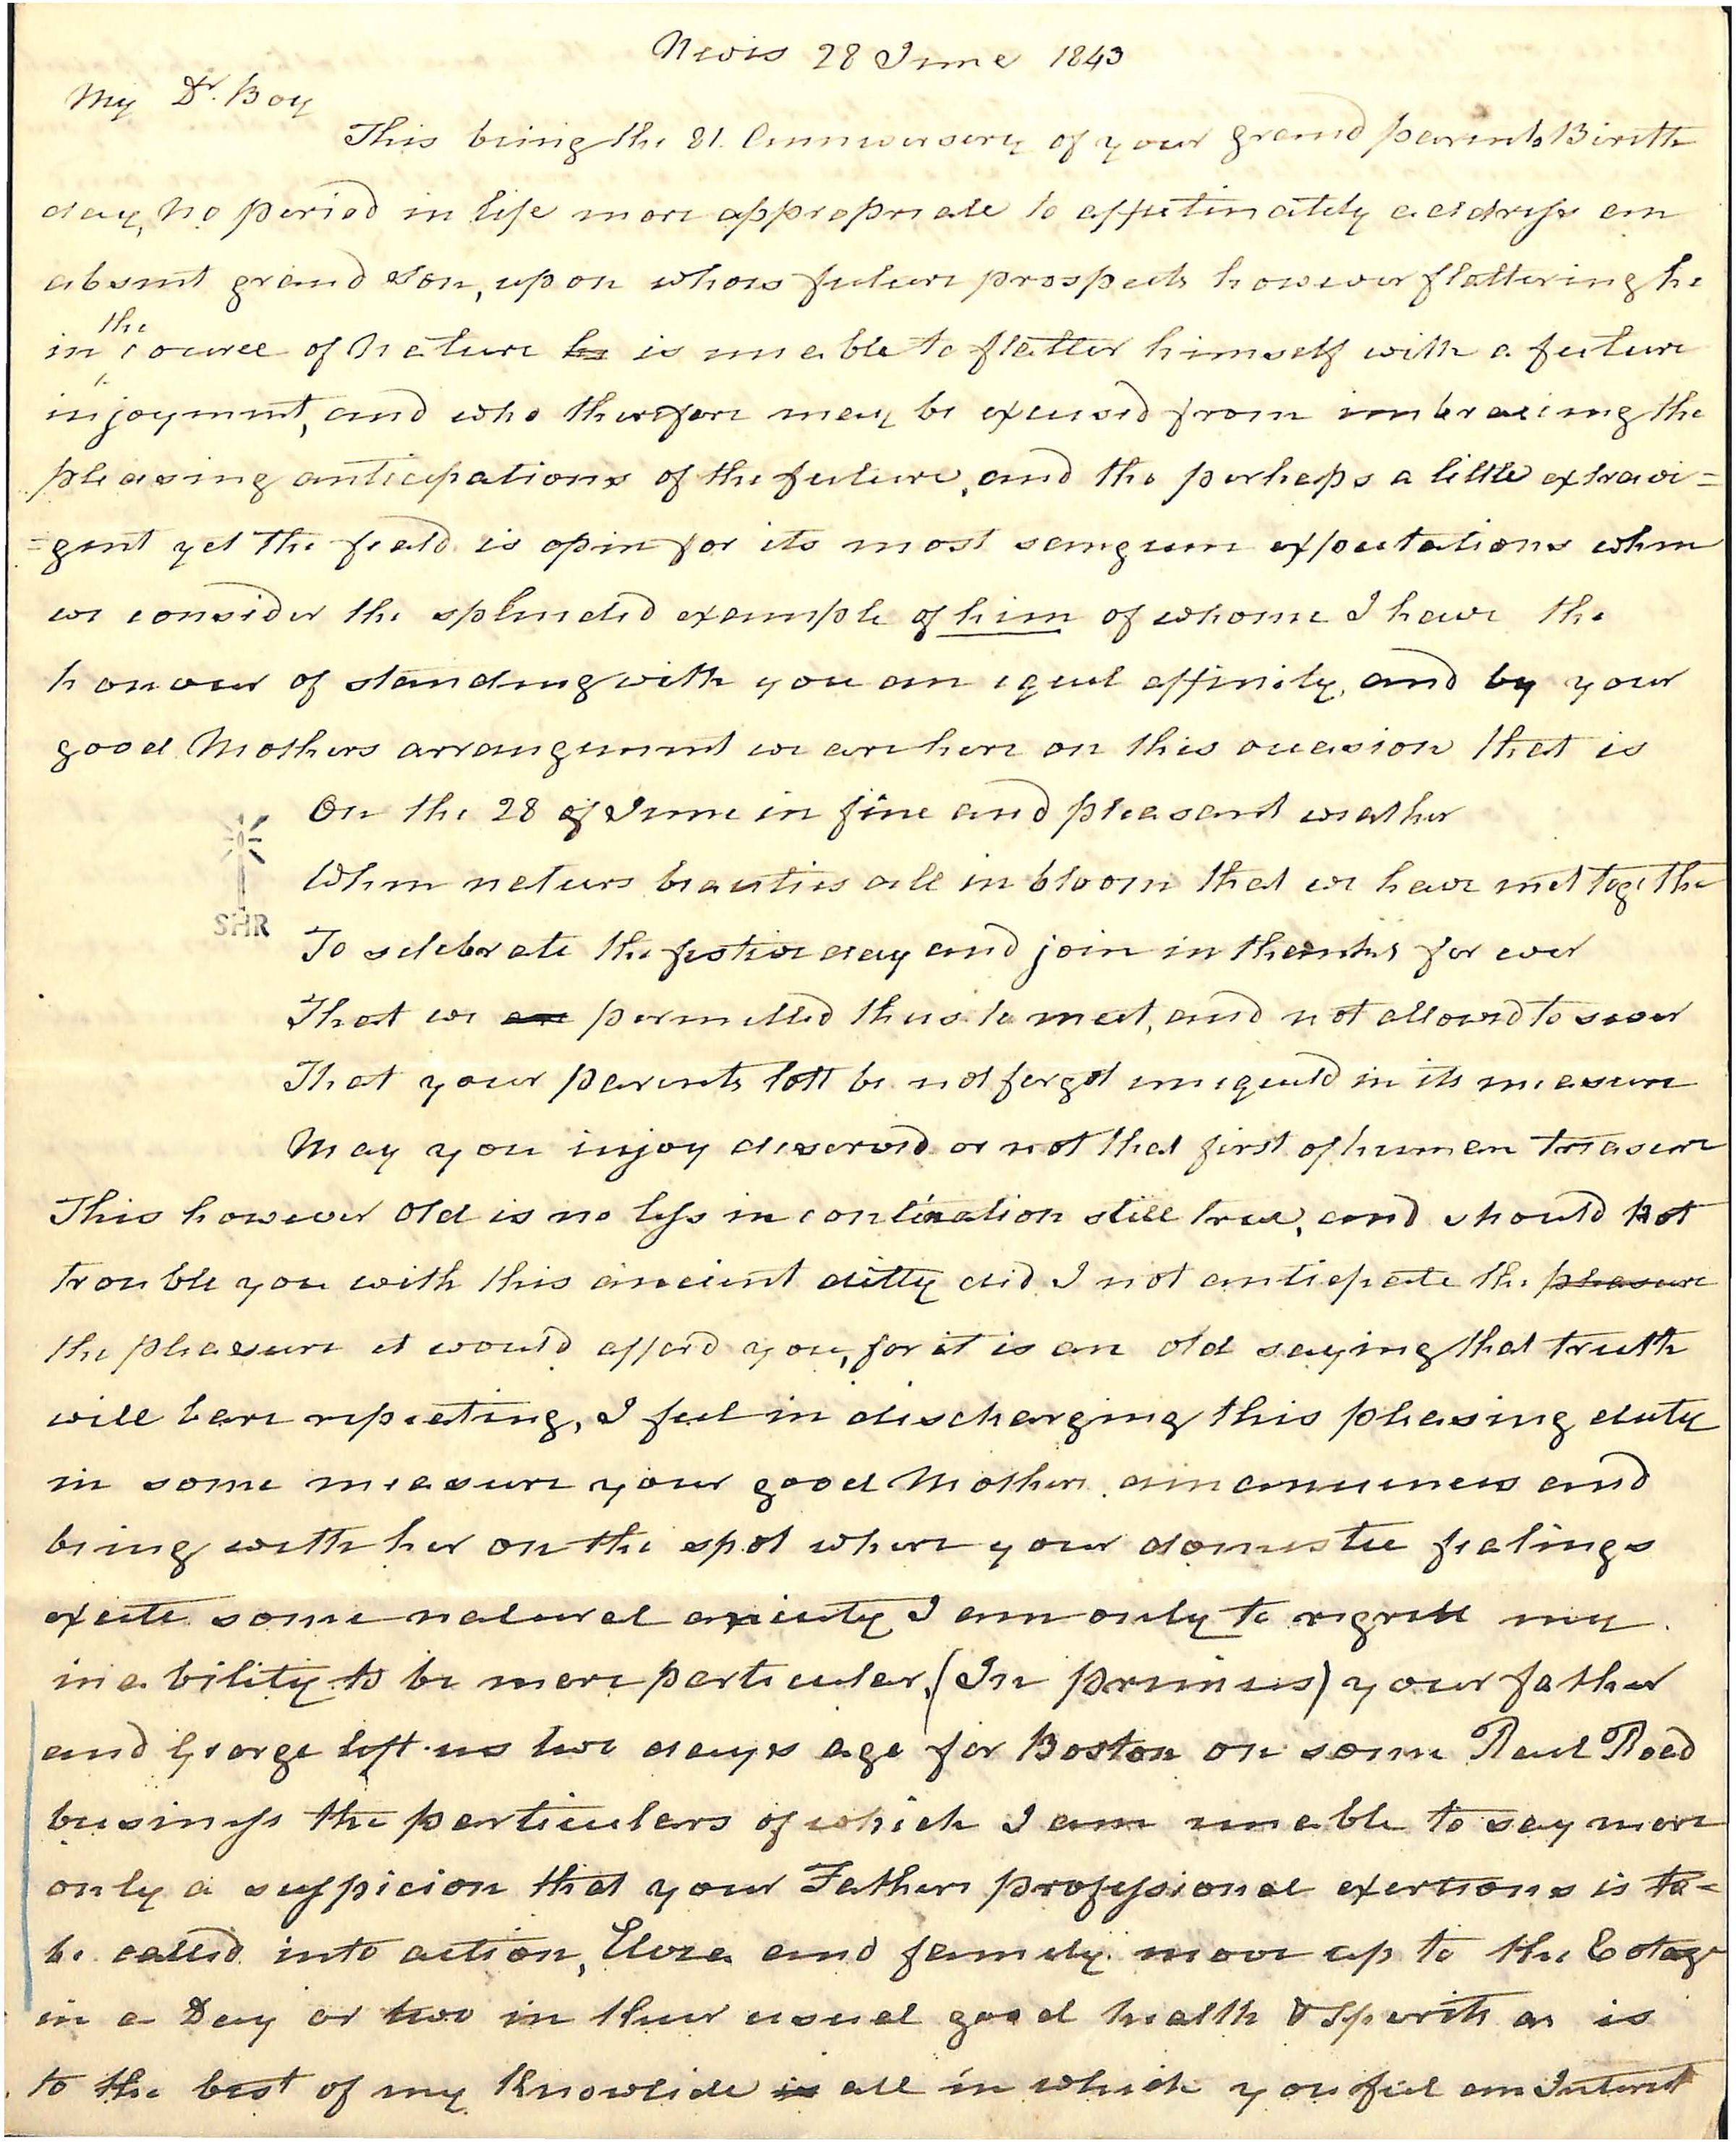 Nevis 28 June 1843
My Dr. Boy
This being the 81. Anniversery of your grand parents Birth
day, no period in life more appropriate to affectinately address an
absent grand son, upon whose future prospects however flattering he
the
in course of Nature he is unable to flatter himself with a future
injoyment, and who therefore may be excused from imbraceing the
pleasing anticipations of the future, and tho perhaps a little extravi=
=gent yet the feald is open for its most sanguin expectations when
we consider the splended example of him of whome I have the
honour of standing with you an equel affinity, and by your
good Mothers arrangement we are here on this occasion that is
On the 28 of June in fine and pleasant weather
SHR
When naturs beauties all in bloom that we have met together
To selebrate the festive day and join in thanks for ever
That we are permitted thus to meet, and not allowed to sever
That your parents lott be not forgot unequeld in its measure
May you injoy deserved or not that first of human treasure
This however Old is no less in contination still true, and should not
trouble you with this ancient ditty did I not anticipate the pleasure
the pleasure it would afford you, for it is an old saying that truth
will bare repeating, I feel in discharging this pleasing duty
in some measure your good Mothers amanuenses and
being with her on the spot where your domestic fealings
excite some natural anxiety I am only to regrett my
inability to be more particular, (In primus) your father
and George left us two days ago for Boston on some Rail Road
business the particulars of which I am unable to say more
only a suspicion that your Fathers professional exertions is to=
be called into action, Eliza and family move up to the Cotage
in a Day or two in their usual good health & Sperits as is
to the best of my Knowlide is all in which you feel an Interest